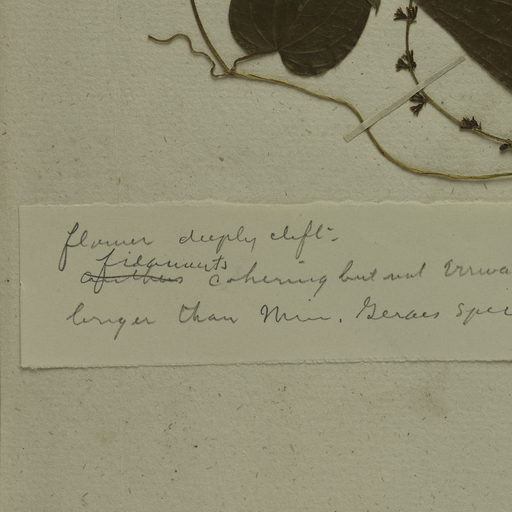 flower deeply cleft-
filaments
anthers cohering but not
longer than Min. Geraes